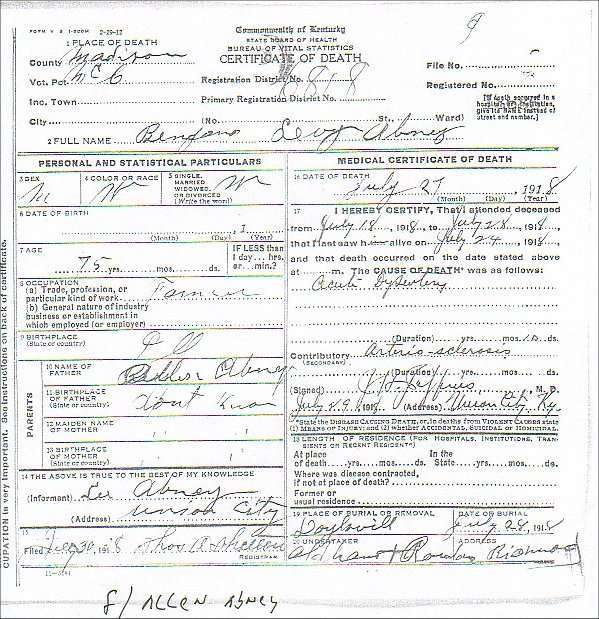 FORM V S 1-500M 2-29-12
Commonwealth of Kentucky
STATE BOARD OF HEALTH
BUREAU OF VITAL STATISTICS
CERTIFICATE OF DEATH
1 PLACE OF DEATH
County Madison
Vot. Pct.
Inc. Town
City
Registration District No.
Primary Registration District No.
(No. St., Ward)
File No.
Registered No.
[If death occurred in a hospital or institution, give its NAME instead of street and number.]
2 FULL NAME Levy Abney
PERSONAL AND STATISTICAL PARTICULARS
3 SEX M
4 COLOR OR RACE W
5 SINGLE, MARRIED WIDOWED, OR DIVORCED (Write the word) W
6 DATE OF BIRTH
(Month) (Day) (Year)
7 AGE
75 yrs. mos. ds.
IF LESS than 1 day... hrs. or... min.?
8 OCCUPATION
(a) Trade, profession, or particular kind of work Farmer
(b) General nature of industry business or establishment in which employed (or employer)
9 BIRTHPLACE
(State or country)
PARENTS
10 NAME OF FATHER Abney
11 BIRTHPLACE OF FATHER (State or country) Dont Know
12 MAIDEN NAME OF MOTHER
13 BIRTHPLACE OF MOTHER (State or country)
14 THE ABOVE IS TRUE TO THE BEST OF MY KNOWLEDGE
(Informant) Lee Abney
(Address) Union City
15
Filed 30, 1918 Thos
REGISTRAR
11-3184
MEDICAL CERTIFICATE OF DEATH
16 DATE OF DEATH
July 27, 1918
(Month) (Day) (Year)
17 I HEREBY CERTIFY, That I attended deceased
from July 18, 1918, to July 28, 1918,
that I last saw him alive on July 24, 1918,
and that death occurred on the date stated above
at m. The CAUSE OF DEATH* was as follows:
Acute Dysentery
(Duration) yrs. mos. 10 ds.
Contributory Arterio-sclerosis
(SECONDARY)
(Duration) yrs. mos. ds.
(Signed) Jeffries M. D.
July 29, 191 (Address) Union City Ky.
*State the DISEASE CAUSING DEATH, or, in deaths from VIOLENT CAUSES state (1) MEANS OF INJURY; and (2) whether ACCIDENTAL, SUICIDAL or HOMICIDAL.
18 LENGTH OF RESIDENCE (FOR HOSPITALS, INSTITUTIONS, TRANSIENTS OR RECENT RESIDENTS)
At place of death yrs. mos. ds. In the State yrs. mos. ds.
Where was disease contracted, if not at place of death?
Former or usual residence
19 PLACE OF BURIAL OR REMOVAL
DATE OF BURIAL
July 28, 1918
20 UNDERTAKER
ADDRESS
Richmond
CUPATION is very important. See instructions on back of certificate.
S/ ALLEN ABNEY